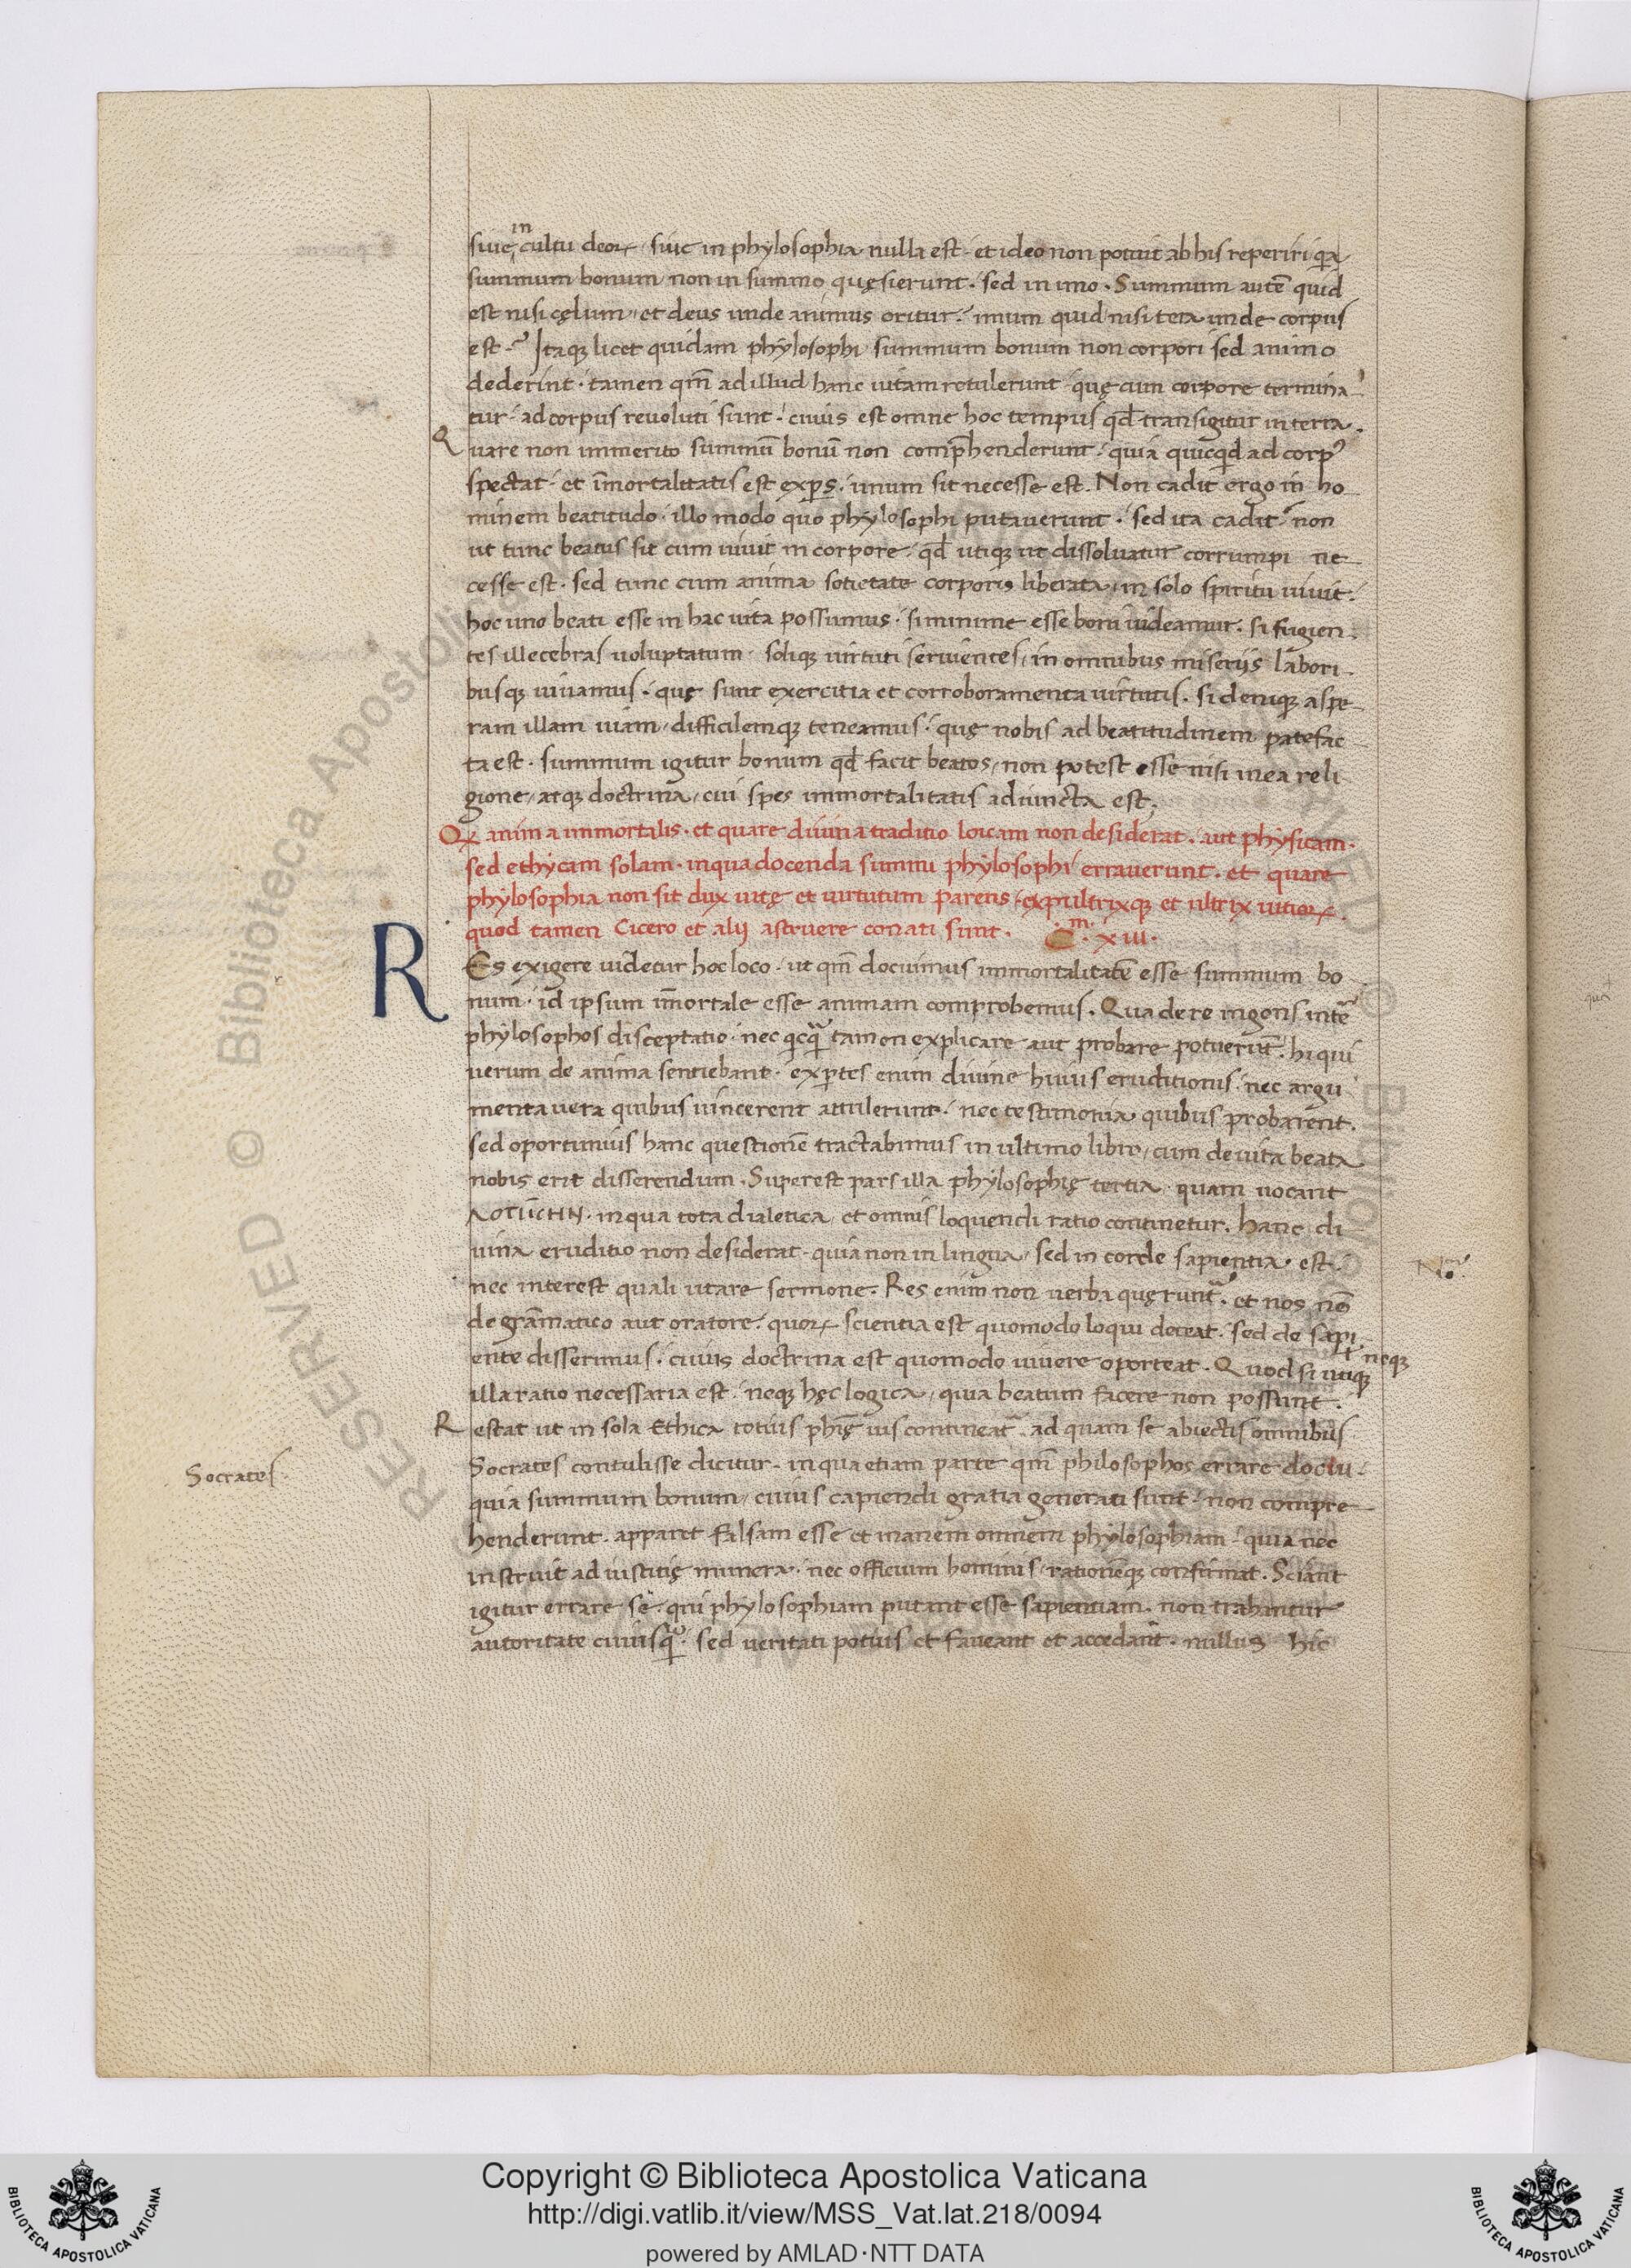 in
siue cultu deoꝝ siue in phylosophia nulla est et ideo non potuit ab his reperiri qa
summum bonum non in summo quęsierunt. sed in imo. Summum autē quid
est nisi cęlum, et deus unde animus oritur: imum quid nisi terra unde corpus
est? Itaqꝫ licet quidam phylosophi summum bonum non corpori sed animo
dederint. tamen qm̄ ad illud hanc uitam retulerunt quę cum corpore termina
tur. ad corpus reuoluti sunt. cuius est omne hoc tempus qđ transigitur in terra.
Quare non immerito summū bonū non comp̄henderunt. quia quicqd ad corpꝰ
spectat. et īmortalitatis est expers. imum sit necesse est. Non cadit ergo in ho
minem beatitudo illo modo quo phylosophi putauerunt. sed ita cadit. non
ut tunc beatus sit cum uiuit in corpore. qđ utiqꝫ ut dissoluatur corrumpi ne
cesse est. sed tunc cum anima sotietate corporis liberata, in solo spiritu uiuit.
hoc uno beati esse in hac uita possumus. si minime esse boni uideamur. si fugien
tes illecebras uoluptatum. soliqꝫ uirtuti seruientes, in omnibus miseriis labori
busqꝫ uiuamus. quę sunt exercitia et corroboramenta uirtutis. si deniqꝫ aspe
ram illam uiam, difficilemqꝫ teneamus. quę nobis ad beatitudinem patefac
ta est. summum igitur bonum qđ facit beatos, non potest esse nisi in ea reli
gione, atqꝫ doctrina, cui spes immortalitatis adiuncta est.
Qꝫ anima immortalis. et quare diuina traditio loicam non desiderat. aut physicam.
sed ethycam solam. in qua docenda summi phylosophi errauerunt. et quare
phylosophia non sit dux uitę et uirtutum parens. expultrixqꝫ et ultrix uitioꝝ.
quod tamen Cicero et alii astruere conati sunt. C.m xiii.
REs exigere uidetur hoc loco. ut qm̄ docuimus immortalitatē esse summum bo
num. id ipsum īmortale esse animam comprobemus. Qua de re ingens inter
phylosophos disceptatio. nec qicqͣ tamen explicare aut probare potuerūt. hi qui
uerum de anima sentiebant. expertes enim diuine huius eruditionis. nec argu
menta uera quibus uincerent attulerunt. nec testimonia quibus probarent.
sed oportunius hanc questionē tractabimus in ultimo libro, cum de uita beata
nobis erit disserendum. Superest pars illa phylosophię tertia. quam uocant
ΛΟΓΙCΗΝ. in qua tota dialetica, et omnis loquendi ratio continetur. hanc di
uina eruditio non desiderat. quia non in lingua, sed in corde sapientia est.
nec interest quali utare sermone. Res enim non uerba quęrunt᷑. et nos nō
de grāmatico aut oratore. quoꝝ scientia est quomodo loqui deceat. sed de sapi
ente disserimus. cuius doctrina est quomodo uiuere oporteat. Quod si utiqꝫ neqꝫ
illa ratio necessaria est. neqꝫ hęc logica, quia beatum facere non possunt.
Restat ut in sola Ethica totius phię uis contineat᷑. ad quam se abiectis omnibus
Socrates contulisse dicitur. in qua etiam parte qm̄ philosophos errare docui.
quia summum bonum, cuius capiendi gratia generati sunt. non compre
henderunt. apparet falsam esse et inanem omnem phylosophiam. quia nec
instruit ad iustitię munera. nec officium hominis, rationēqꝫ confirmat. Sciant
igitur errare se. qui phylosophiam putant esse sapientiam. non trahantur
autoritate cuiusqͣ. sed ueritati potius et faueant et accedant. nullus hic
Socrates
No
© Biblioteca Apostolica Vaticana
RESERVED
Copyright © Biblioteca Apostolica Vaticana
http://digi.vatlib.it/view/MSS_Vat.lat.218/0094
powered by AMLAD·NTT DATA
BIBLIOTECA APOSTOLICA VATICANA
BIBLIOTECA APOSTOLICA VATICANA